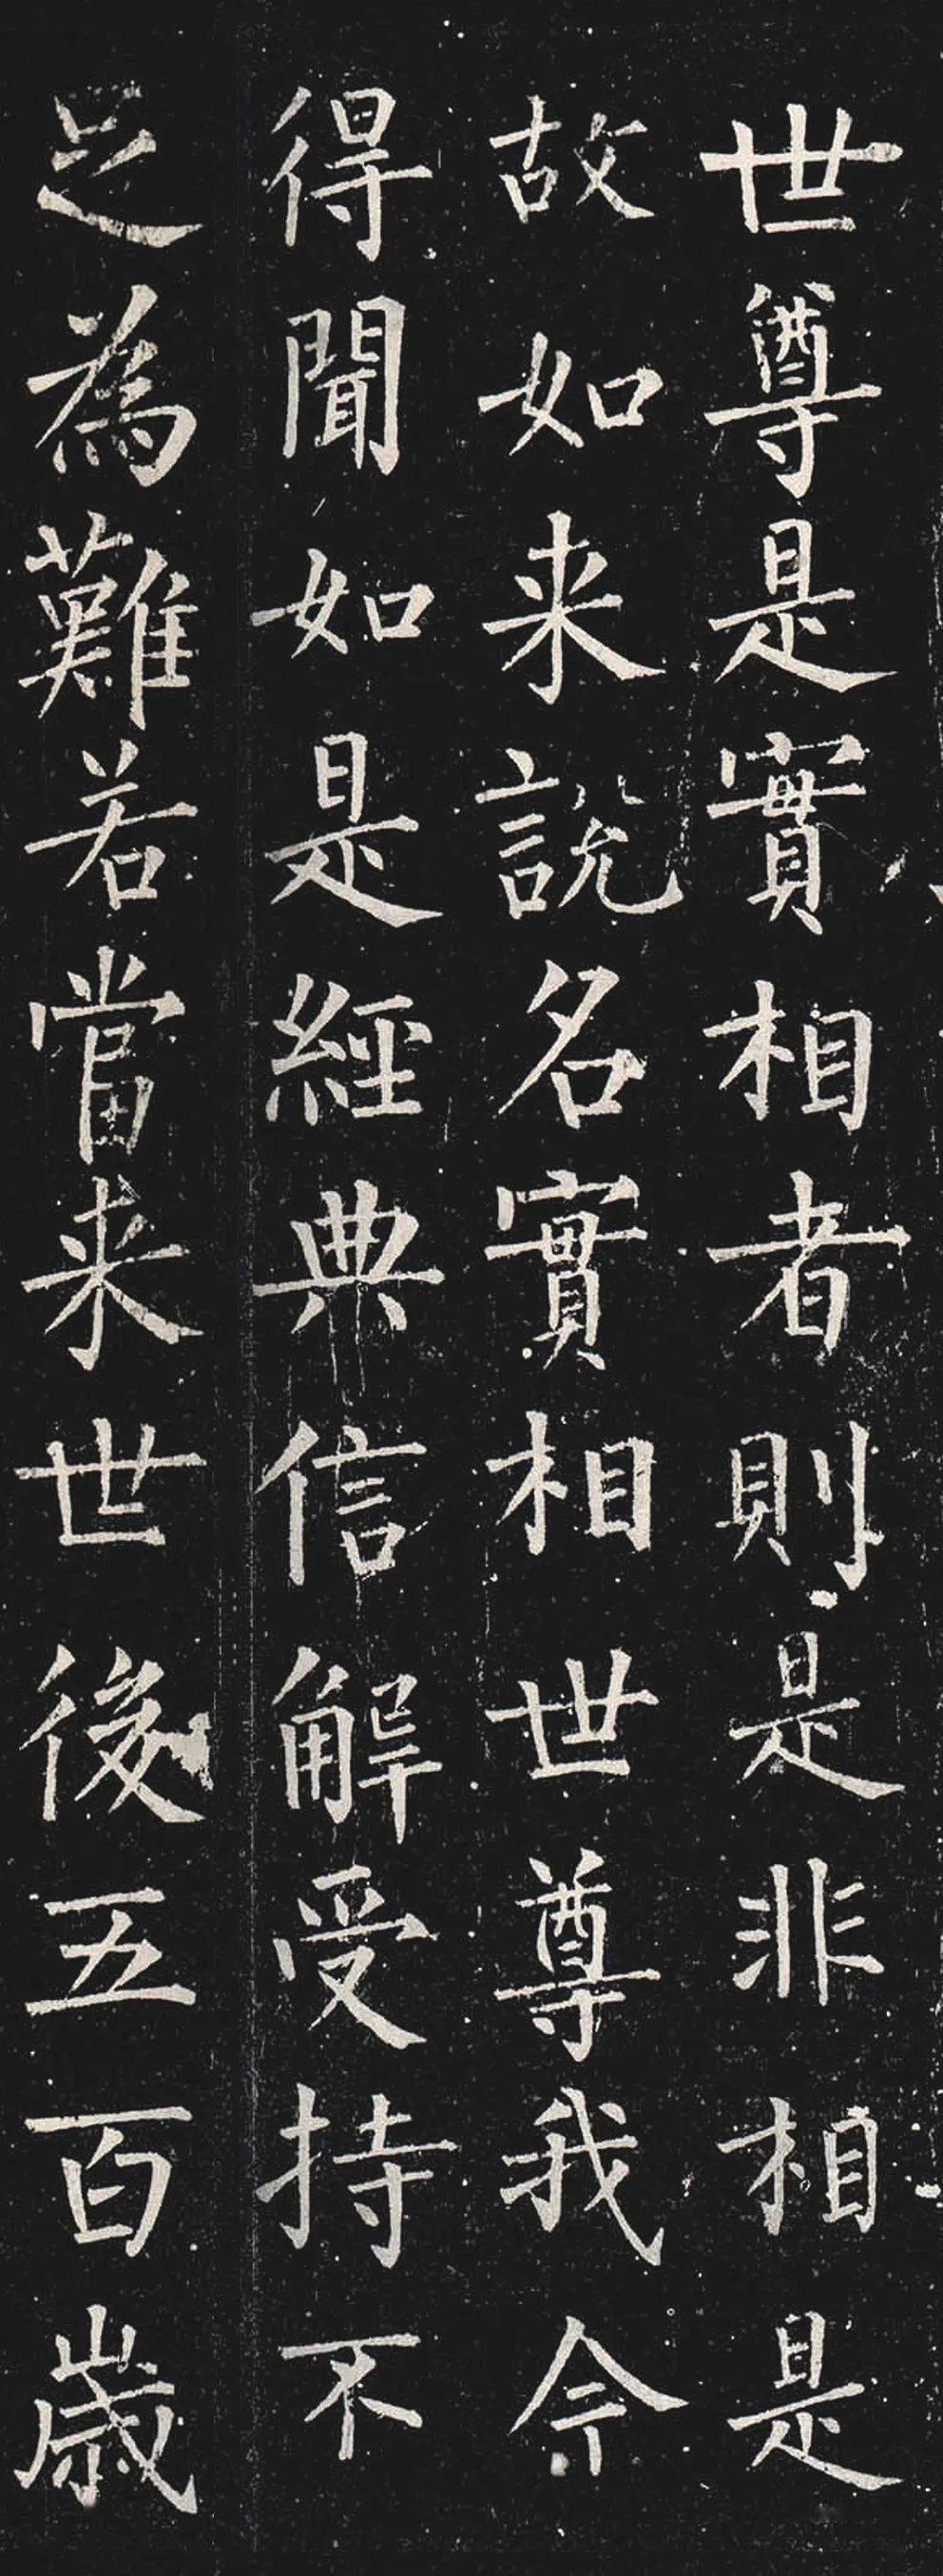 世尊是實相者則是非相是
故如来說名實相世尊我今
得聞如是經典信解受持不
足為難若當来世後五百歲